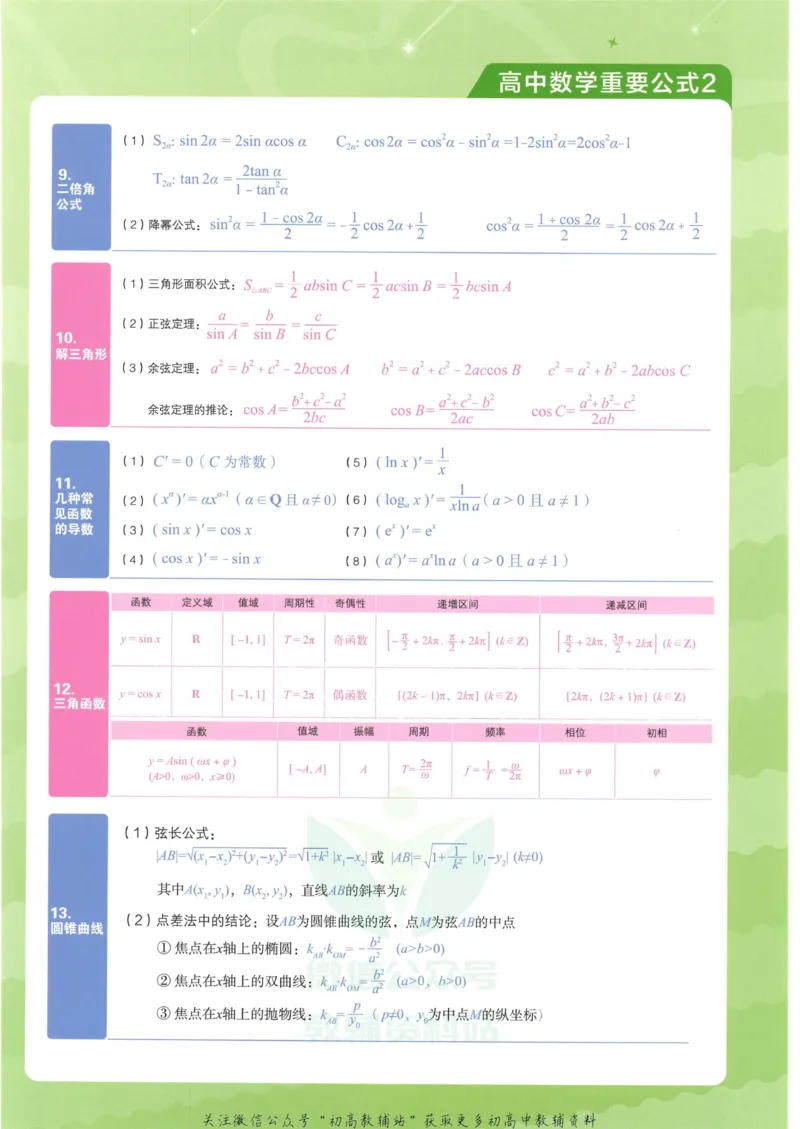 高中数学重要公式2
9.
二倍角
公式
(1) S₂α: sin 2α = 2sin αcos α C₂α: cos2α = cos²α - sin²α =1-2sin²α=2cos²α-1
T₂α: tan 2α = 2tan α / (1 - tan²α)
(2)降幂公式: sin²α = (1 - cos 2α)/2 = -1/2 cos 2α + 1/2 cos²α = (1 + cos 2α)/2 = 1/2 cos 2α + 1/2
10.
解三角形
(1)三角形面积公式: S△ABC = 1/2 absin C = 1/2 acsin B = 1/2 bcsin A
(2)正弦定理: a/sin A = b/sin B = c/sin C
(3)余弦定理: a² = b² + c² - 2bccos A b² = a² + c² - 2accos B c² = a² + b² - 2abcos C
余弦定理的推论: cos A= (b²+c²-a²)/2bc cos B= (a²+c²-b²)/2ac cos C= (a²+b²-c²)/2ab
11.
几种常
见函数
的导数
(1) C′= 0 ( C 为常数 ) (5) ( ln x )′= 1/x
(2) (xᵅ)′= αxᵅ⁻¹ ( α∈Q 且 α≠0) (6) ( logₐ x )′= 1/(xln a) ( a > 0 且 a ≠ 1 )
(3) ( sin x )′= cos x (7) ( eˣ )′= eˣ
(4) ( cos x )′= - sin x (8) ( aˣ)′= aˣln a ( a > 0 且 a ≠ 1 )
12.
三角函数
函数 定义域 值域 周期性 奇偶性 递增区间 递减区间
y = sin x R [ -1, 1] T = 2π 奇函数 [-π/2 + 2kπ, π/2 + 2kπ] (k∈Z) [π/2 + 2kπ, 3π/2 + 2kπ] (k∈Z)
y = cos x R [ -1, 1] T = 2π 偶函数 [(2k - 1)π, 2kπ] (k∈Z) [2kπ, (2k + 1)π] (k∈Z)
函数 值域 振幅 周期 频率 相位 初相
y = Asin ( ωx + φ ) [ -A, A] A T= 2π/ω f = 1/T = ω/2π ωx + φ φ
(A>0, ω>0, x⩾0)
13.
圆锥曲线
(1)弦长公式:
|AB|=√((x₁-x₂)²+(y₁-y₂)²)=√(1+k²) |x₁-x₂| 或 |AB|= √(1+ 1/k²) |y₁-y₂| (k≠0)
其中A(x₁, y₁), B(x₂, y₂), 直线AB的斜率为k
(2)点差法中的结论: 设AB为圆锥曲线的弦, 点M为弦AB的中点
① 焦点在x轴上的椭圆: k_AB·k_OM= - b²/a² (a>b>0)
② 焦点在x轴上的双曲线: k_AB·k_OM= b²/a² (a>0, b>0)
③ 焦点在x轴上的抛物线: k_AB= p/y₀ ( p≠0, y₀为中点M的纵坐标)
微信公众号
教辅资料站
关注微信公众号“初高教辅站”获取更多初高中教辅资料